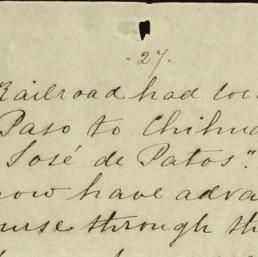 27.
Railroad had loc
Paso to Chihua
José de Patos".
now have adva
urse through th